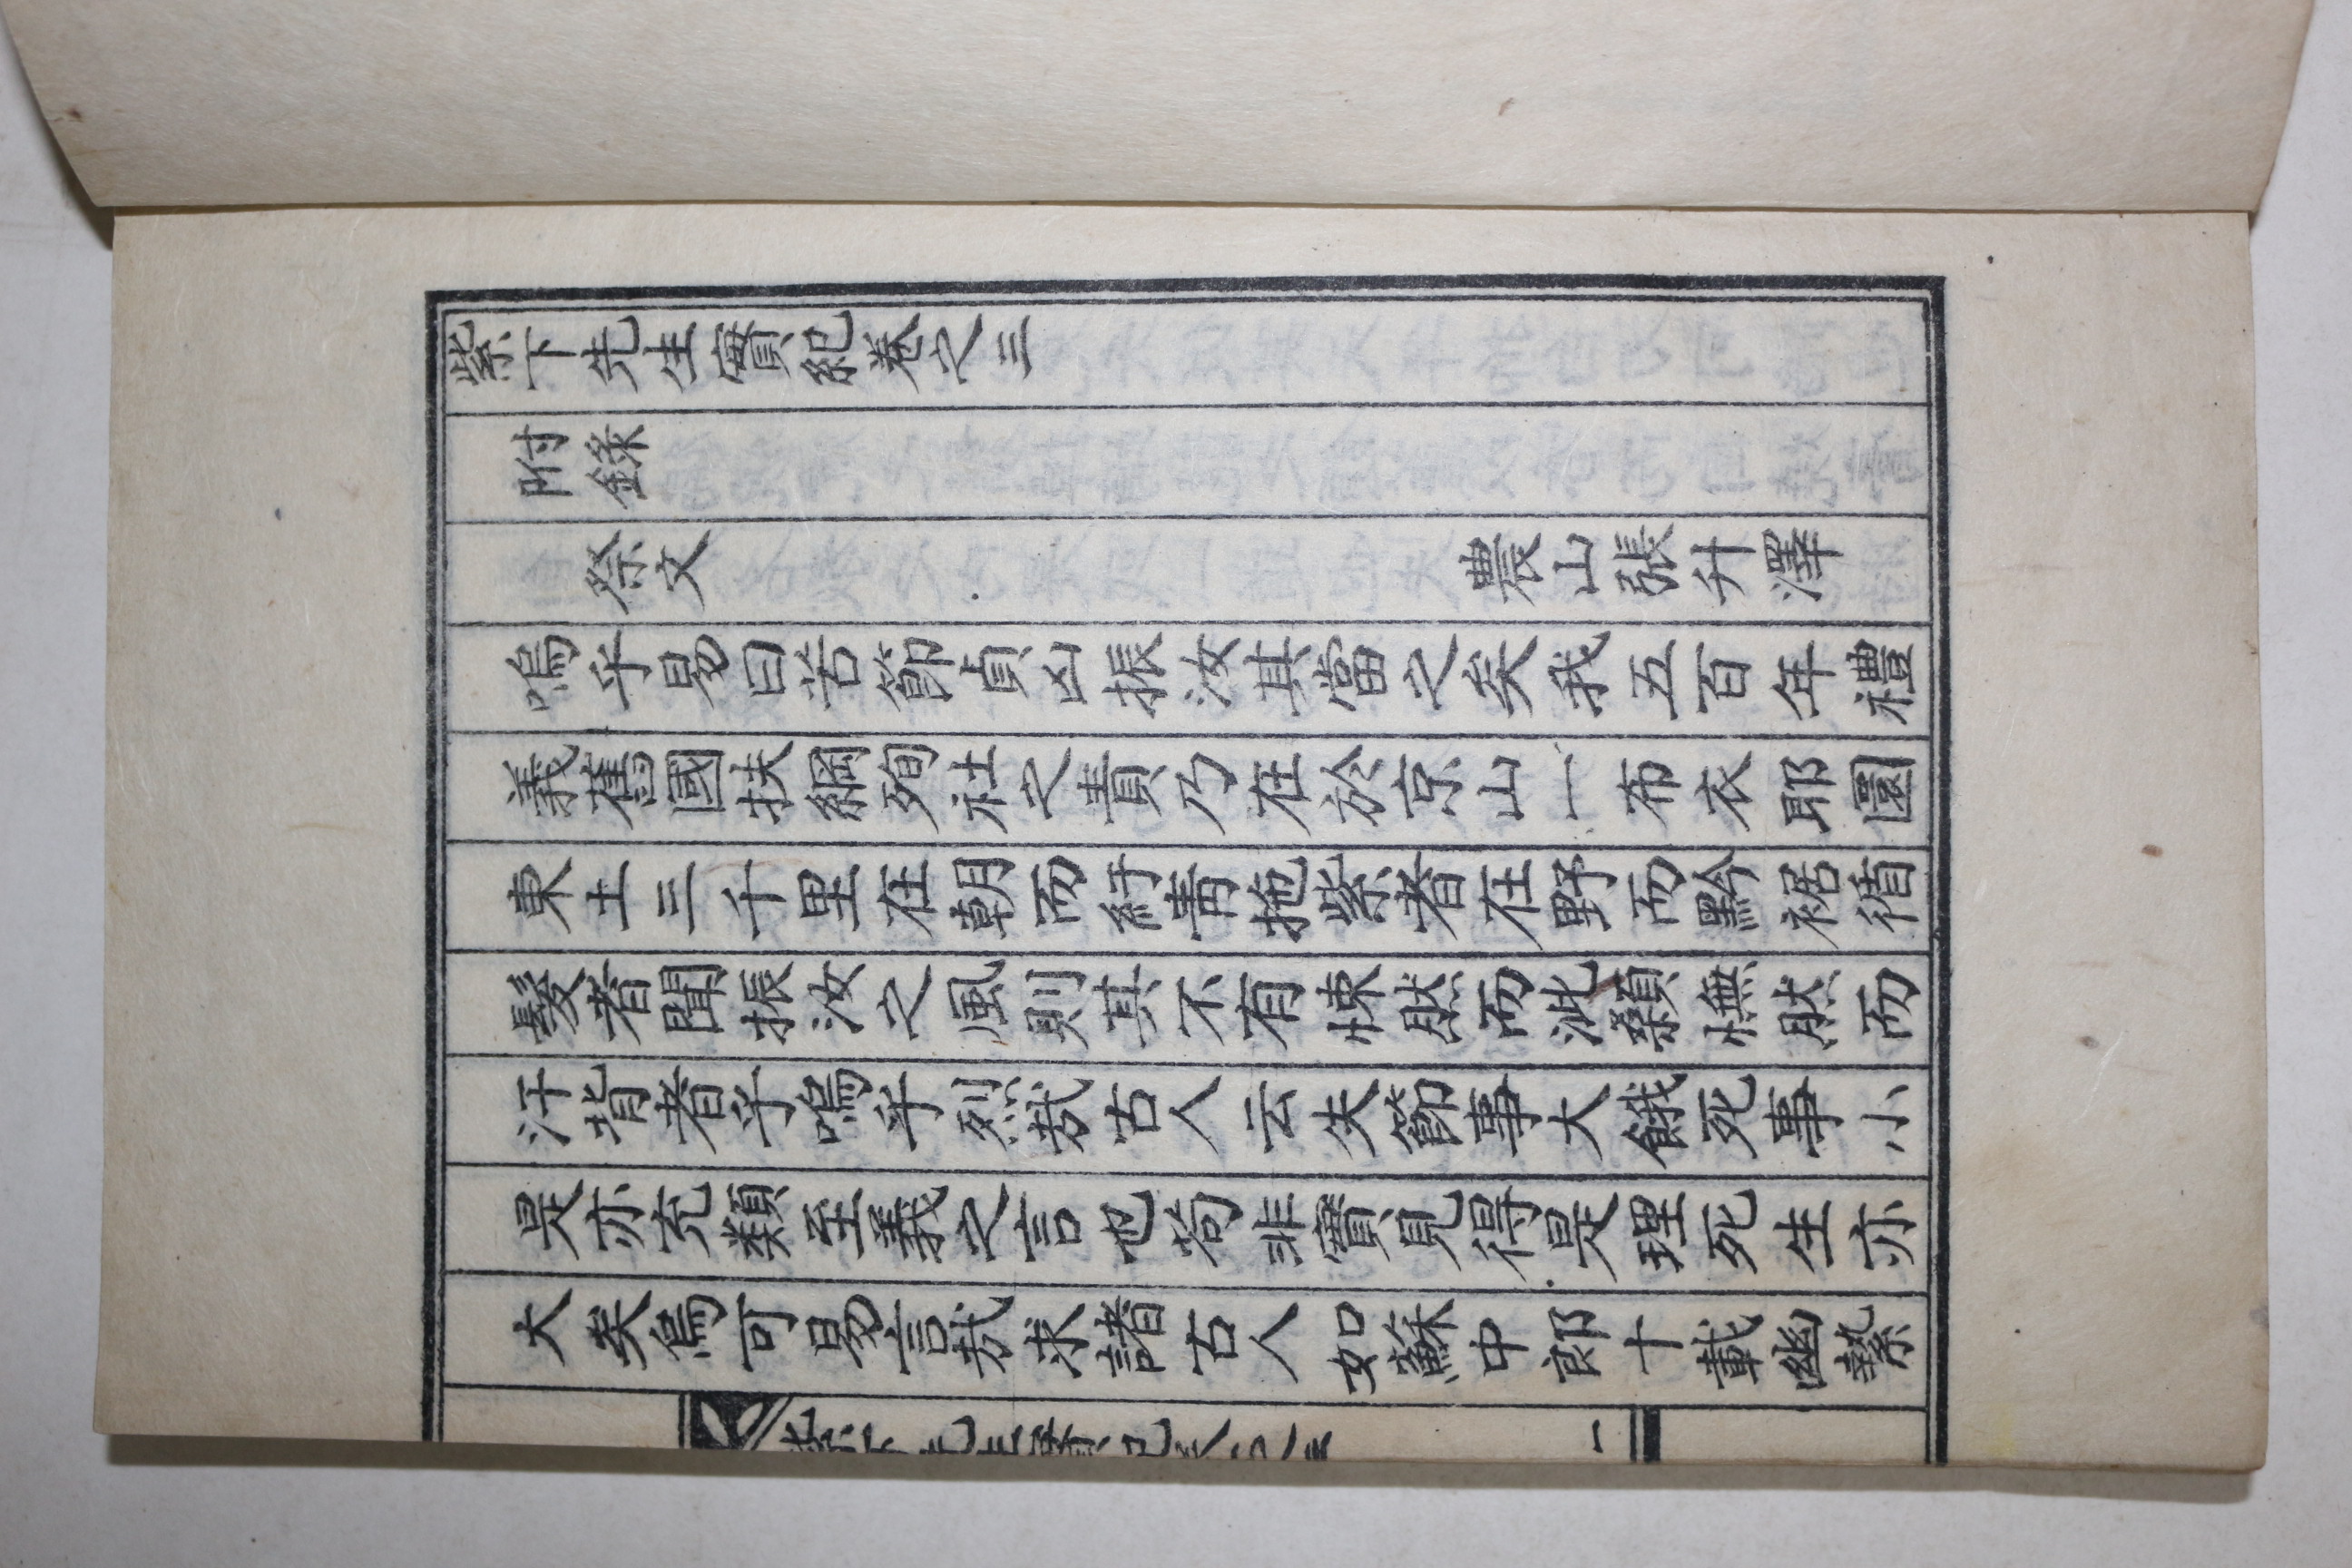 紫下先生實紀卷之三
附錄
祭文 農山張升澤
嗚乎易曰苦節貞凶振汝其當之矣我五百年禮
義舊國扶綱殉社之責乃在於京山一布衣耶圜
東土三千里在朝而紆靑拖紫者在野而黔裾循
髮者聞振汝之風則其不有悚然而泚顙憮然而
汗背者乎嗚乎烈哉古人云失節事大餓死事小
是亦充類至義之言也苟非實見得是理死生亦
大矣烏可易言哉求諸古人如蘇中郎十載幽縶
一